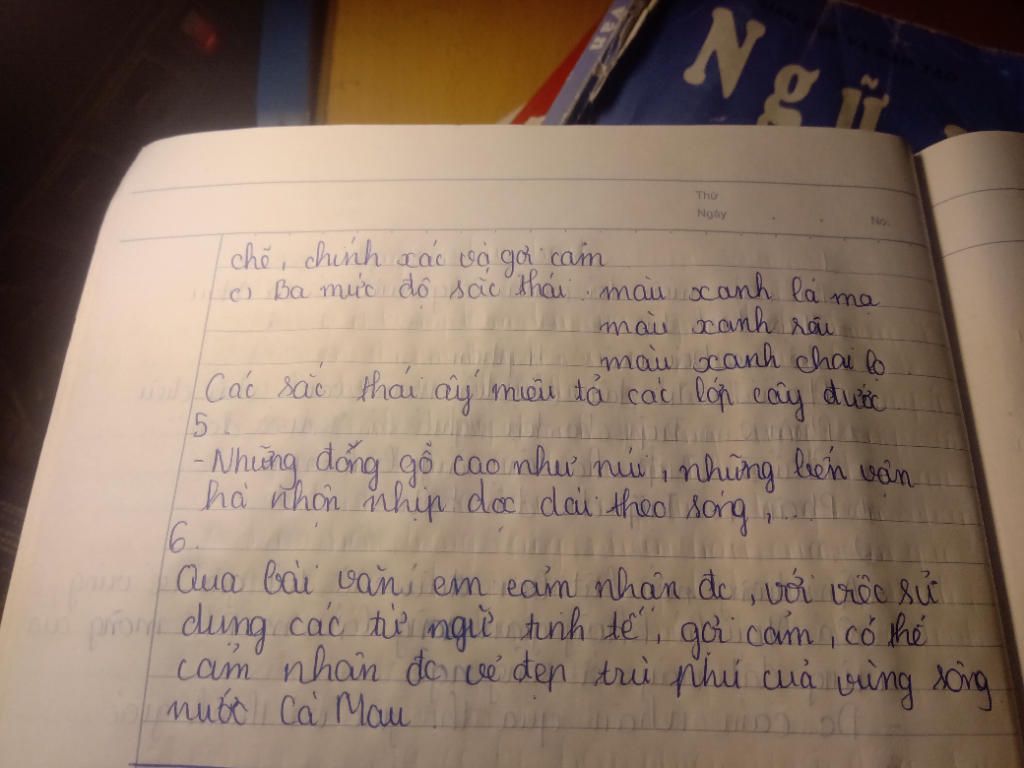 Ngữ
Thứ
Ngày
No.
chẽ, chính xác và gợi cảm
c) Ba mức độ sắc thái: màu xanh lá mạ
màu xanh rêu
màu xanh chai lọ
Các sắc thái ấy miêu tả các lớp cây đước
5.
- Những đống gỗ cao như núi, những bến vận
hà nhộn nhịp dọc dài theo sông, ...
6.
Qua bài văn, em cảm nhận đc, với việc sử
dụng các từ ngữ tinh tế, gợi cảm, có thể
cảm nhận đc vẻ đẹp trù phú của vùng sông
nước Cà Mau